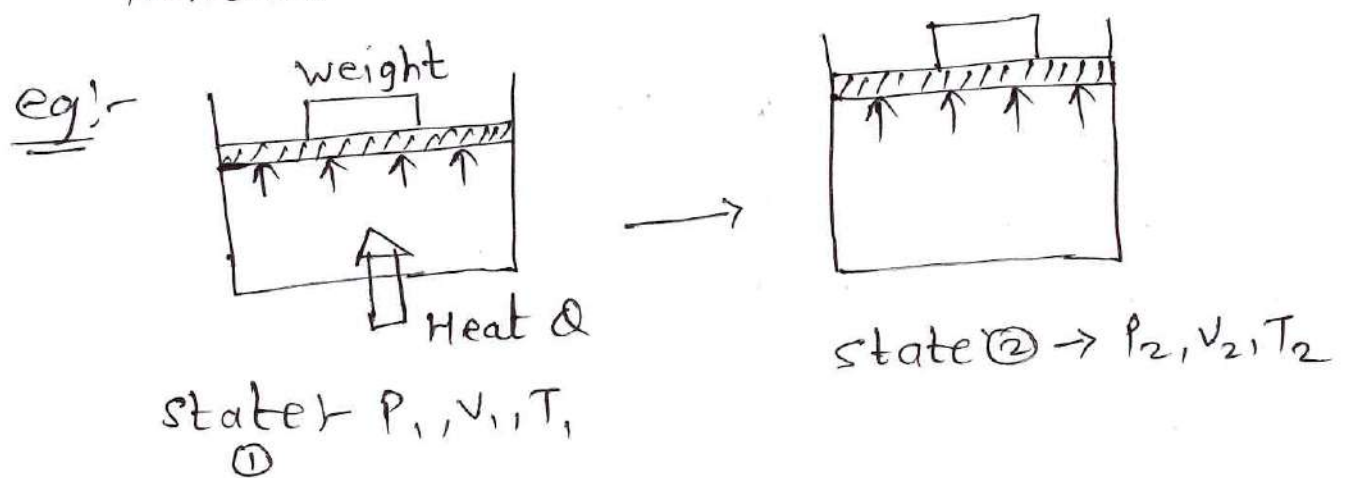 eg:-
weight
Heat Q
state⊢ P₁, V₁, T₁
①
state ② → P₂, V₂, T₂